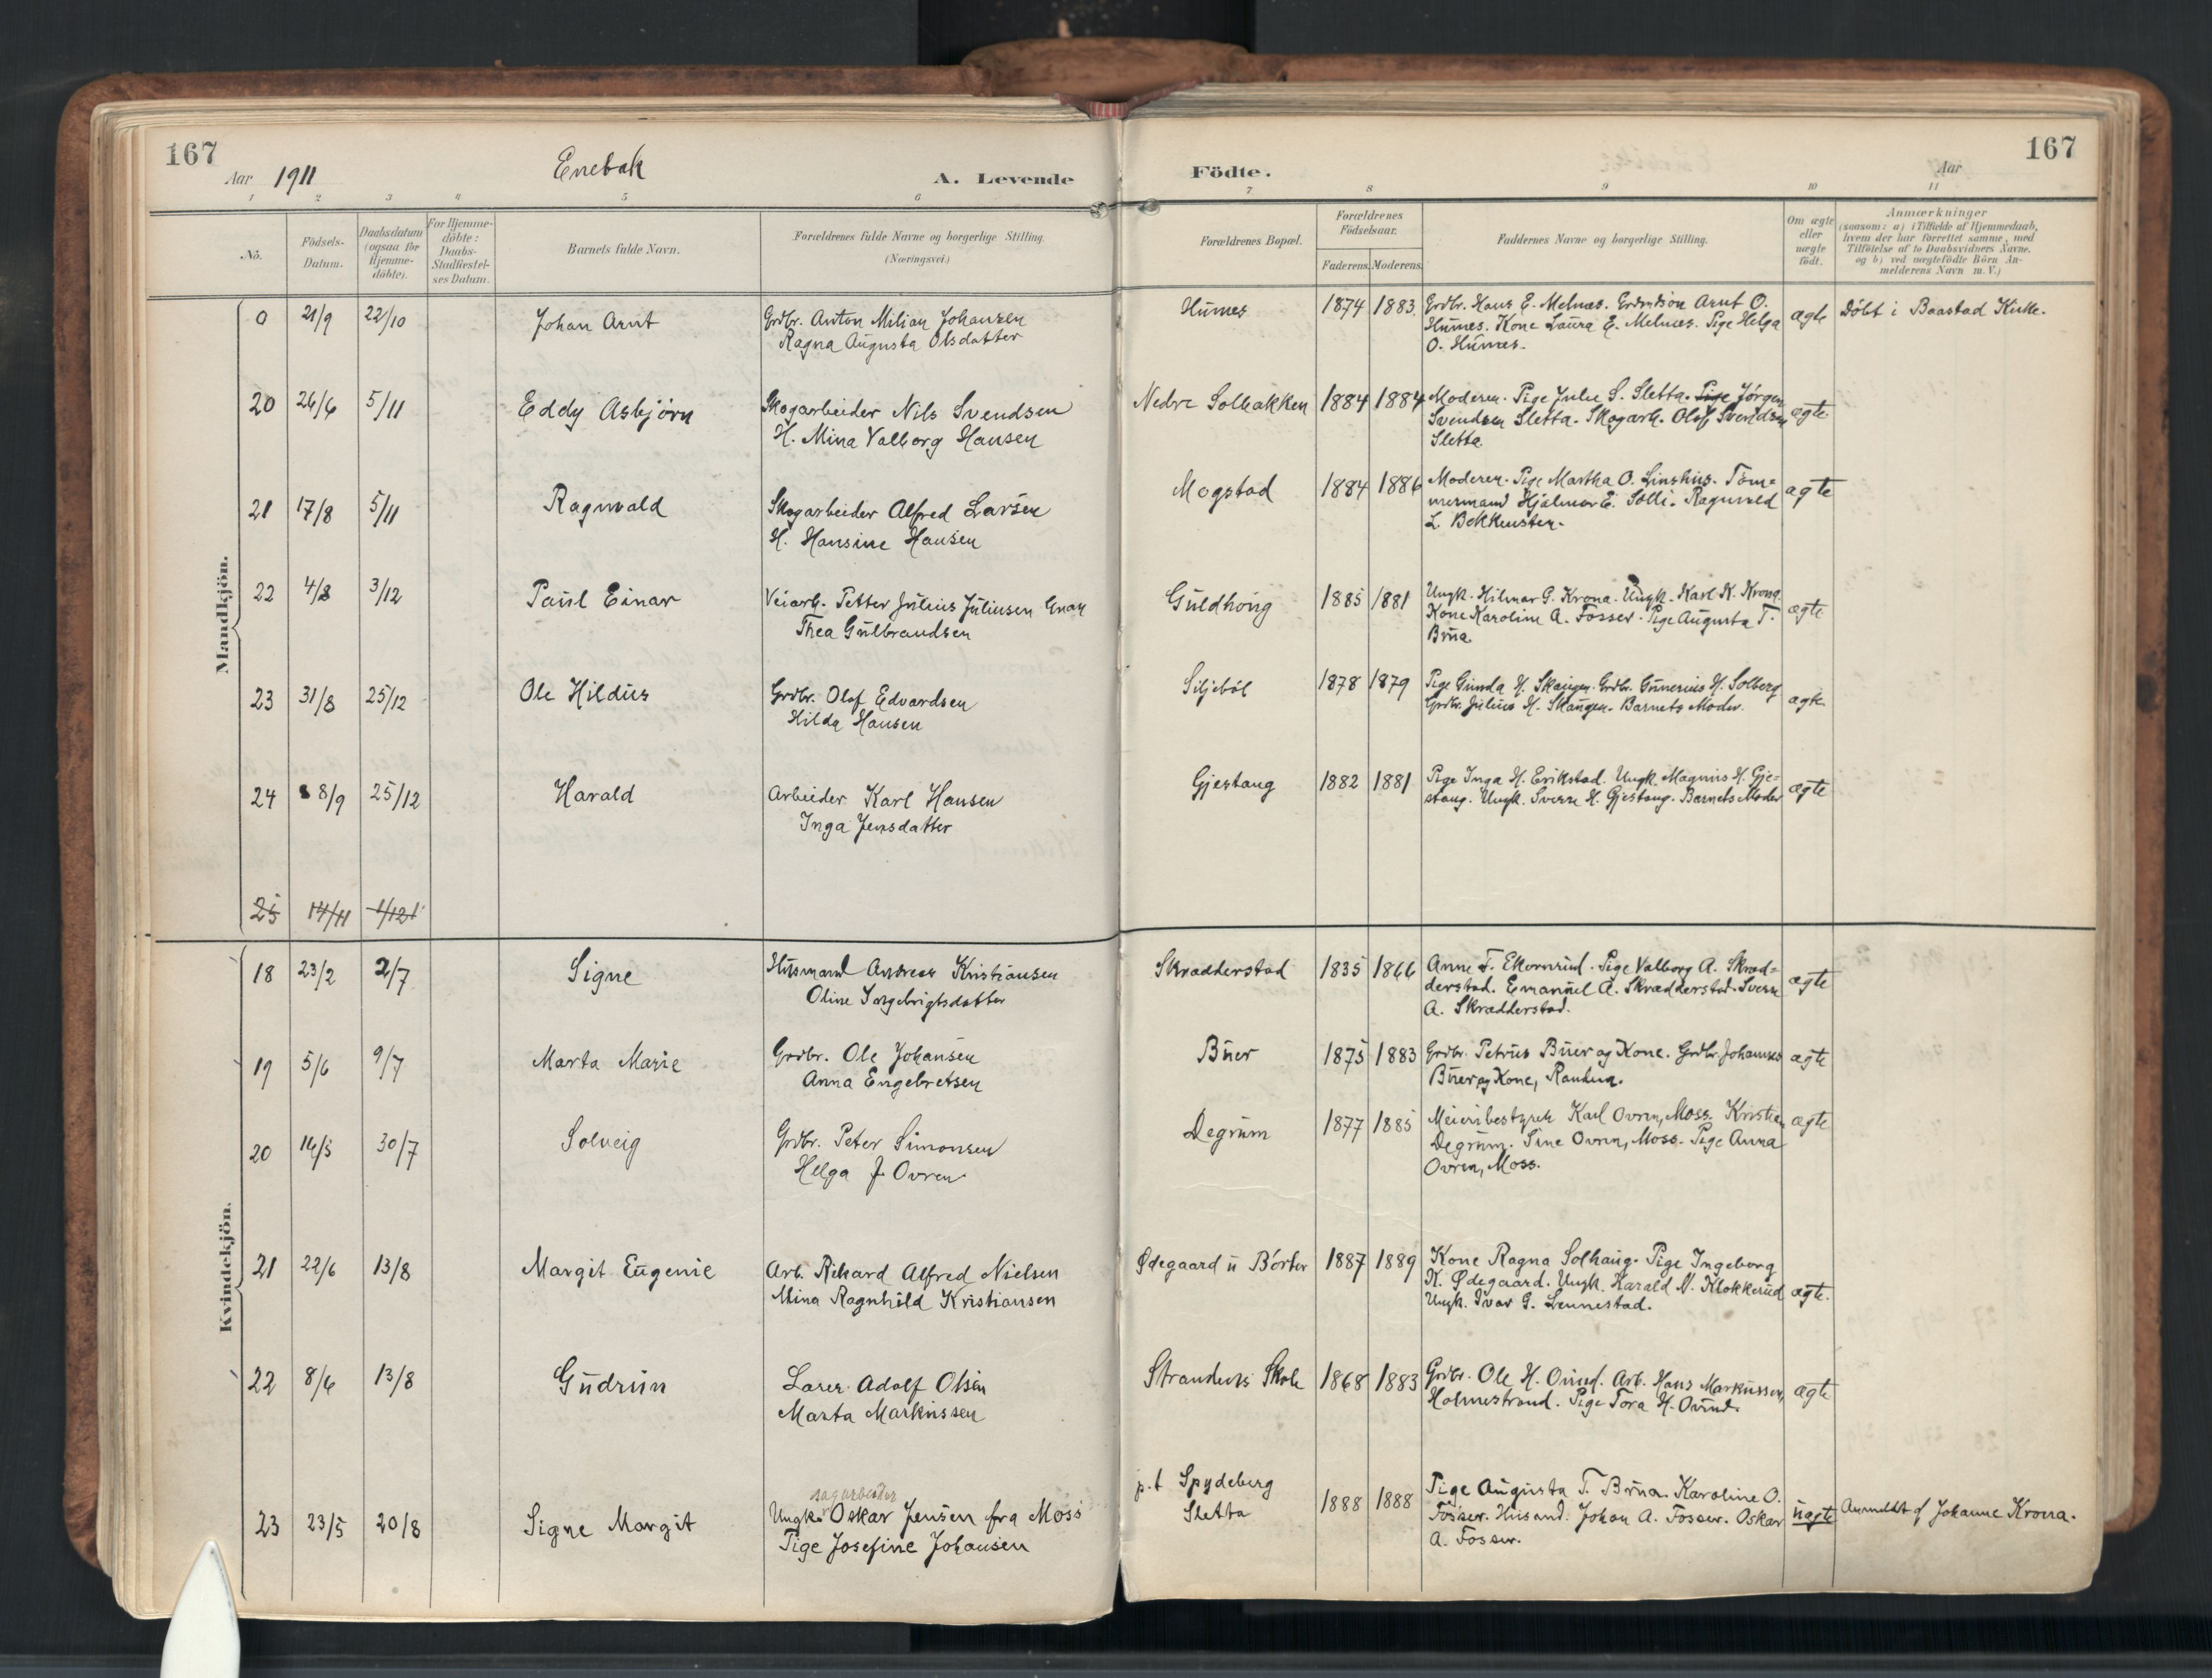 167
Aar 1911
Enebak
A. Levende
Födte.
Aar
167
1 2 3 4 5 6 7 8 9 10 11
No.
Födsels-
Datum.
Daabsdatum
(ogsaa for
Hjemme-
döbte).
For Hjemme-
döbte:
Daabs-
Stadfæstel-
ses Datum.
Barnets fulde Navn.
Forældrenes fulde Navne og borgerlige Stilling.
(Næringsvei.)
Forældrenes Bopæl.
Forældrenes
Födselsaar.
Faderens. Moderens.
Faddernes Navne og borgerlige Stilling.
Om ægte
eller
uægte
födt.
Anmærkninger
(saasom: a) i Tilfælde af Hjemmedaab,
hvem der har forrettet samme, med
Tilföielse af to Daabsvidners Navne,
og b) ved uægtefödte Börn An-
melderens Navn m. V.)
Mandkjön.
0 21/9 22/10 Johan Arnt
Grdbr. Anton Milian Johansen
Ragna Augusta Olsdatter
Humes 1874 1883
Grdbr. Hans E. Melnes. Grdmdsön Arnt O.
Humes. Kone Laura E. Melnes. Pige Helga
O. Humes.
ægte
Döbt i Baastad Kirke.
20 26/6 5/11 Eddy Asbjörn
Skogarbeider Nils Svendsen
H. Mina Valborg Hansen
Nedre Solbakken 1884 1884
Moderen. Pige Julie S. Sletta. Pige Jörgen
Svendsen Sletta. Skogarb. Olaf Svendsen
Sletta.
ægte
21 17/8 5/11 Ragnvald
Skogarbeider Alfred Larsen
H. Hansine Hansen
Mogstad 1884 1886
Moderen. Pige Martha O. Linshus. Töm-
mermand Hjalmar E. Solli. Ragnvald
L. Bekkensten.
ægte
22 4/8 3/12 Paul Einar
Veiarb. Petter Julius Juliussen
Thea Gulbrandsen
Guldhaug 1885 1881
Ungk. Hilmar G. Krona. Ungk. Karl K. Krona.
Kone Karoline A. Fosser. Pige Augusta T.
Brua.
ægte
23 31/8 25/12 Ole Hildus
Grdbr. Olaf Edvardsen
Hilda Hansen
Siljeböl 1878 1879
Pige Gunda H. Skaugen. Grdbr. Gunerius H. Solberg
Grdbr. Julius H. Skaugen. Barnets Moder.
ægte
24 8/9 25/12 Harald
Arbeider Karl Hansen
Inga Jensdatter
Gjestang 1882 1881
Pige Inga H. Erikstad. Ungk. Magnus H. Gje-
stang. Ungk. Sverre H. Gjestang. Barnets Moder
ægte
25 14/11 1/12
Kvindekjön.
18 23/2 2/7 Signe
Husmand Andreas Kristiansen
Oline Ingebrigtsdatter
Skradderstad 1835 1866
Anne F. Ekornrud. Pige Valborg A. Skræd-
derstad. Emanuel A. Skrædderstad. Sverre
A. Skrædderstad.
ægte
19 5/6 9/7 Marta Marie
Grdbr. Ole Johansen
Anna Engebretsen
Buer 1875 1883
Grdbr. Petrus Buer og Kone. Grdbr. Johannes
Buer og Kone,
ægte
20 14/5 30/7 Solveig
Grdbr. Peter Simonsen
Helga J. Ovren
Degrum 1877 1885
Meieribestyrer Karl Ovren, Moss. Kristian
Degrum. Sine Ovren, Moss. Pige Anna
Ovren, Moss.
ægte
21 22/6 13/8 Margit Eugenie
Arb. Rikard Alfred Nielsen
Mina Ragnhild Kristiansen
Ødegaard u Börter 1887 1889
Kone Ragna Solhaug. Pige Ingeborg
K. Ødegaard. Ungk. Harald N. Klokkerud
Ungk. Ivar G. Lennestad.
ægte.
22 8/6 13/8 Gudrun
Lærer Adolf Olsen
Marta Markussen
Strandens Skole 1868 1883
Grdbr. Ole H. Ovind. Arb. Hans Markussen,
Holmestrand. Pige Tora H. Ovind.
ægte
23 23/5 20/8 Signe Margit
sagarbeider
Ungk. Oskar Jensen fra Moss
Pige Josefine Johansen
p.t Spydeberg
Sletta
1888 1888
Pige Augusta T. Brua. Karoline O.
Fosser. Husmd. Johan A. Fosser. Oskar
A. Fosser.
uægte
Anmeldt af Johanne Krona.